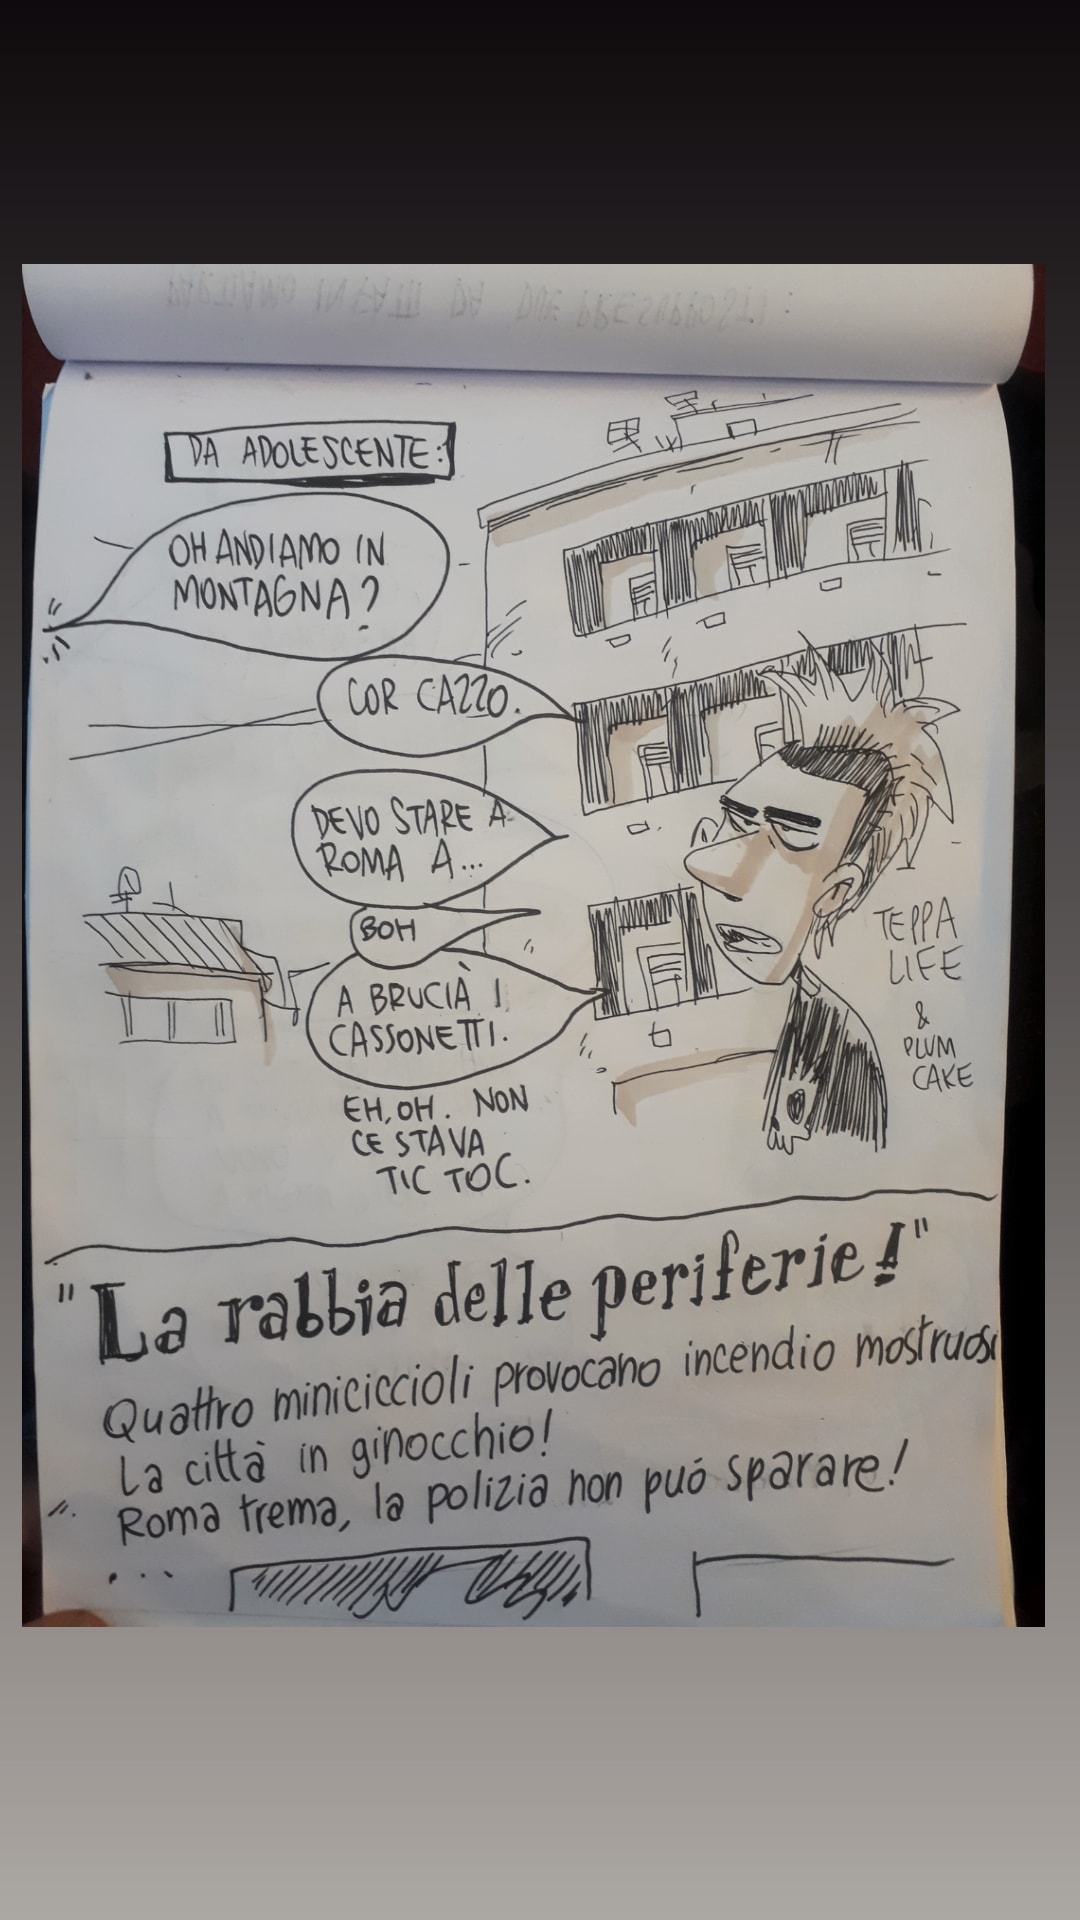 PARTIAMO INFATTI DA DUE PRESUPPOSTI:
DA ADOLESCENTE:
OH ANDIAMO IN
MONTAGNA?
COR CAZZO.
DEVO STARE A
ROMA A...
BOH
A BRUCIÀ I
CASSONETTI.
EH, OH. NON
CE STAVA
TIC TOC.
TEPPA
LIFE
&
PLUM
CAKE
"La rabbia delle periferie!"
Quattro miniciccioli provocano incendio mostruoso
La città in ginocchio!
Roma trema, la polizia non può sparare!
...